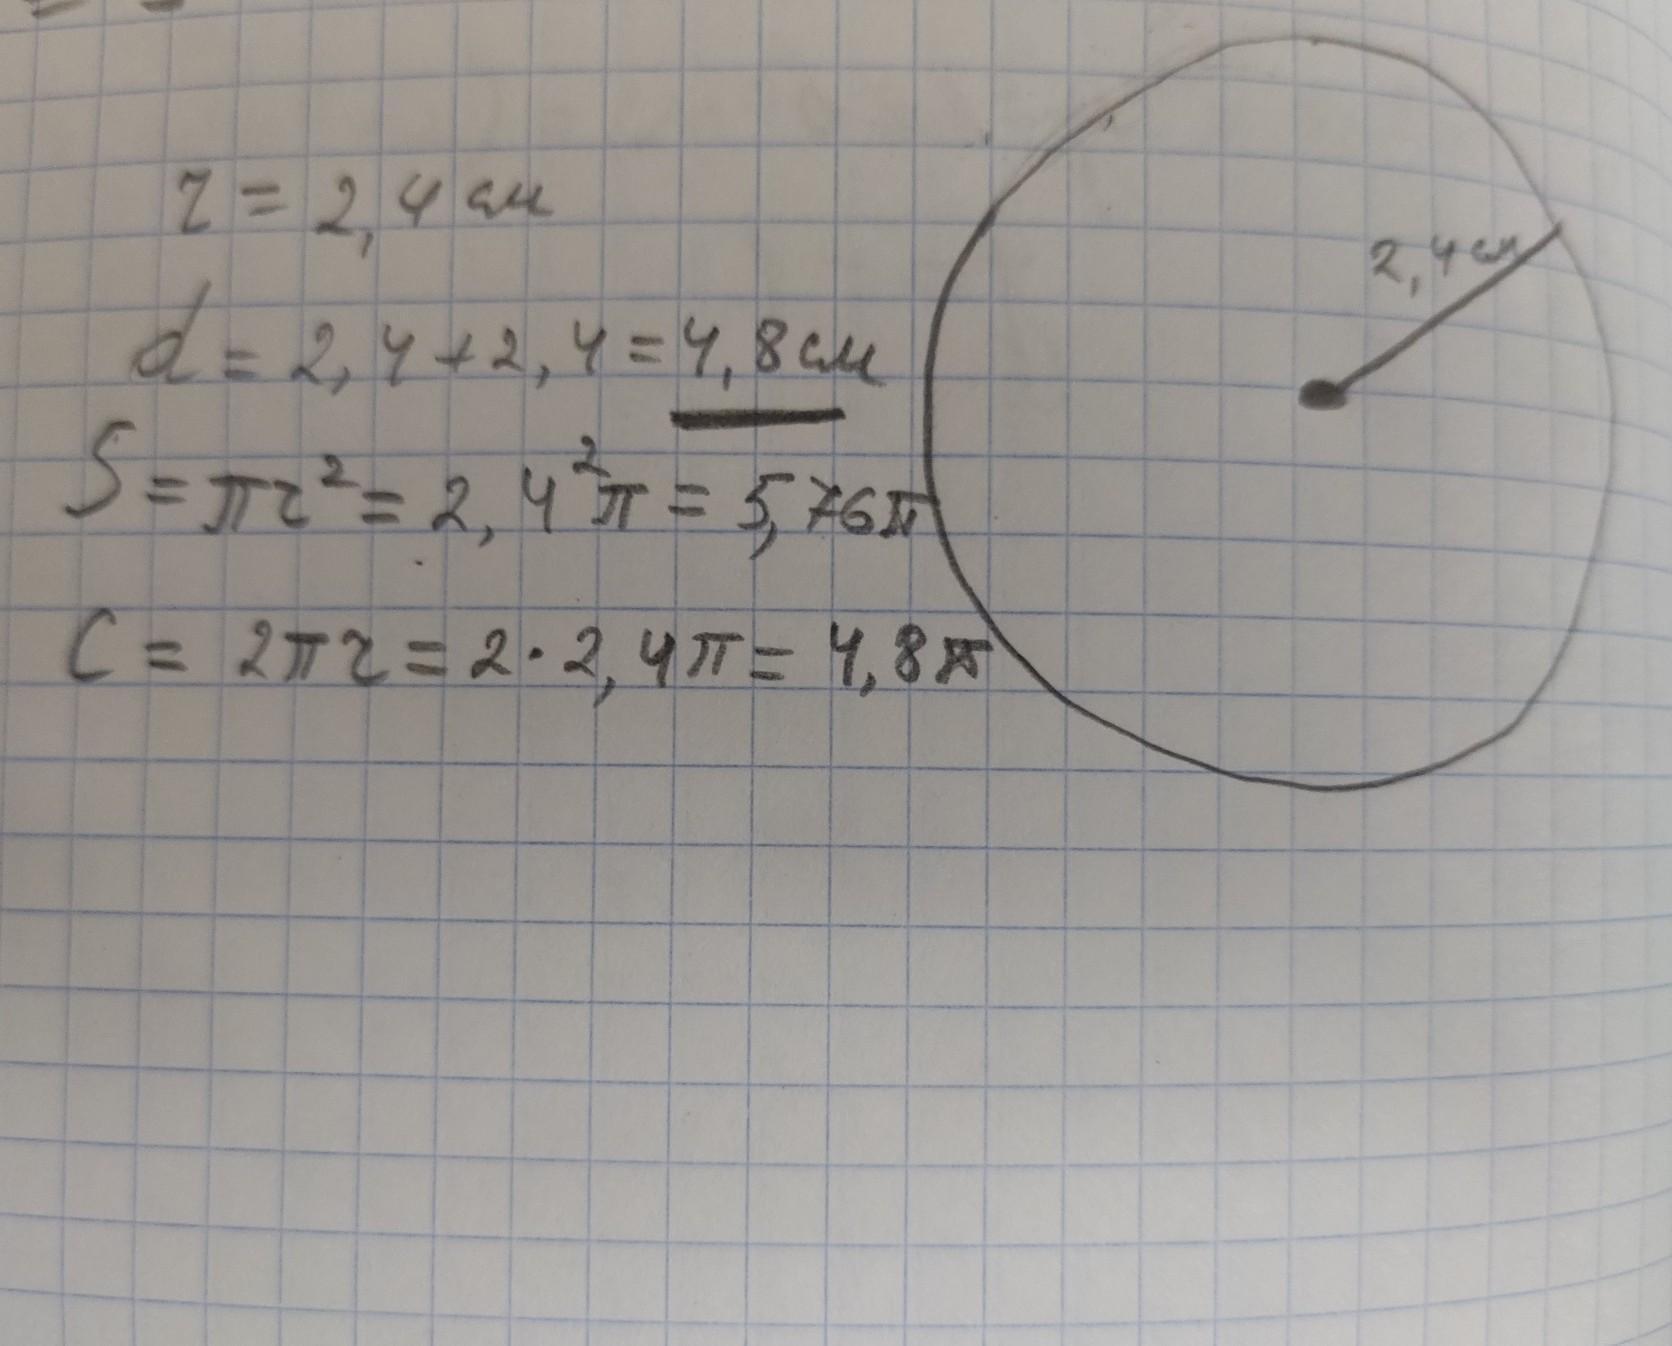 r = 2,4 см
d = 2,4 + 2,4 = 4,8 см
S = πr² = 2,4²π = 5,76π
C = 2πr = 2 · 2,4π = 4,8π
2,4 см